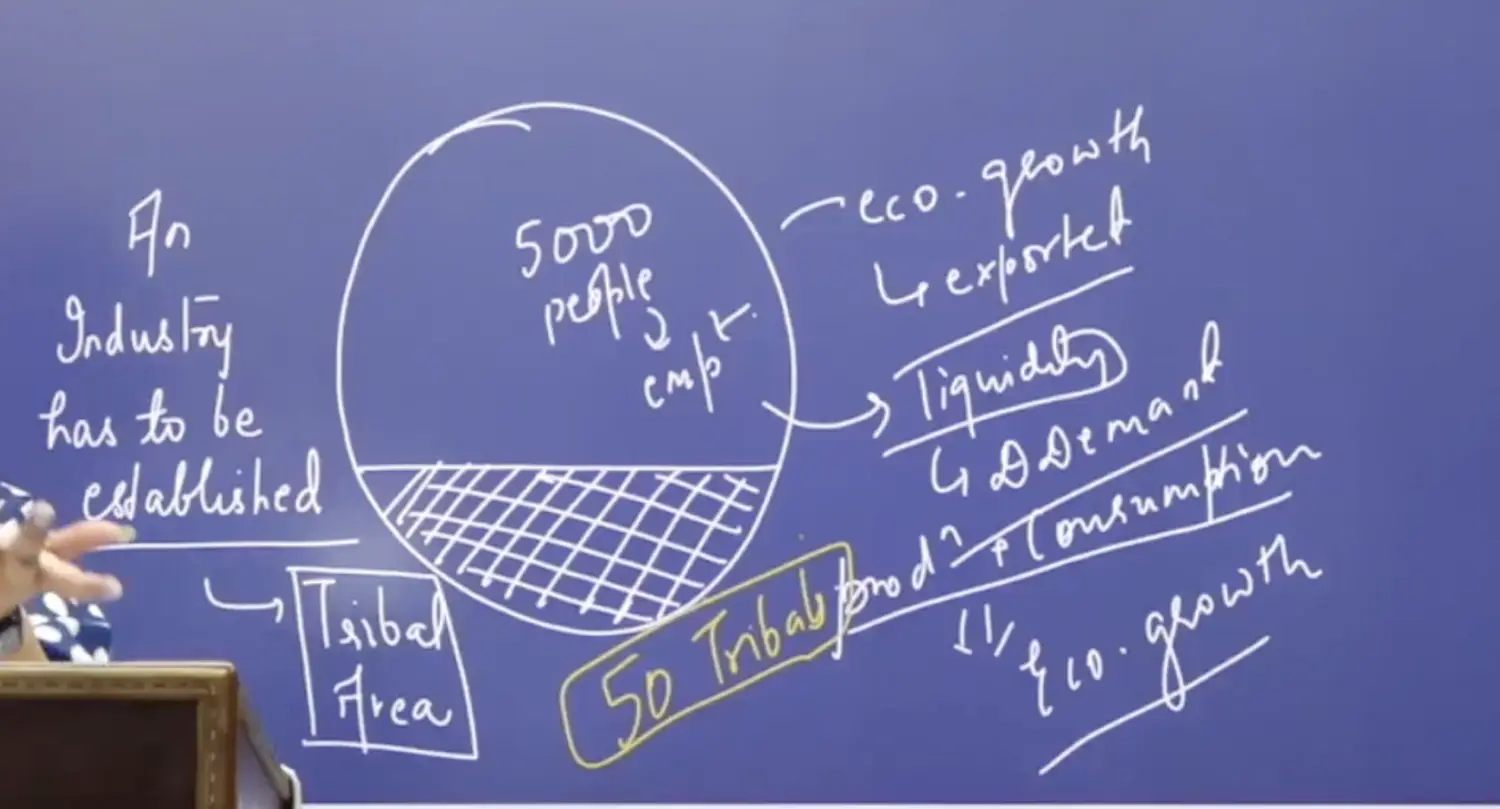 An
Industry
has to be
established
Tribal
Area
5000
people
emp
eco. growth
exported
liquidity
Demand
prodn + Consumption
Eco. growth
50 Tribals